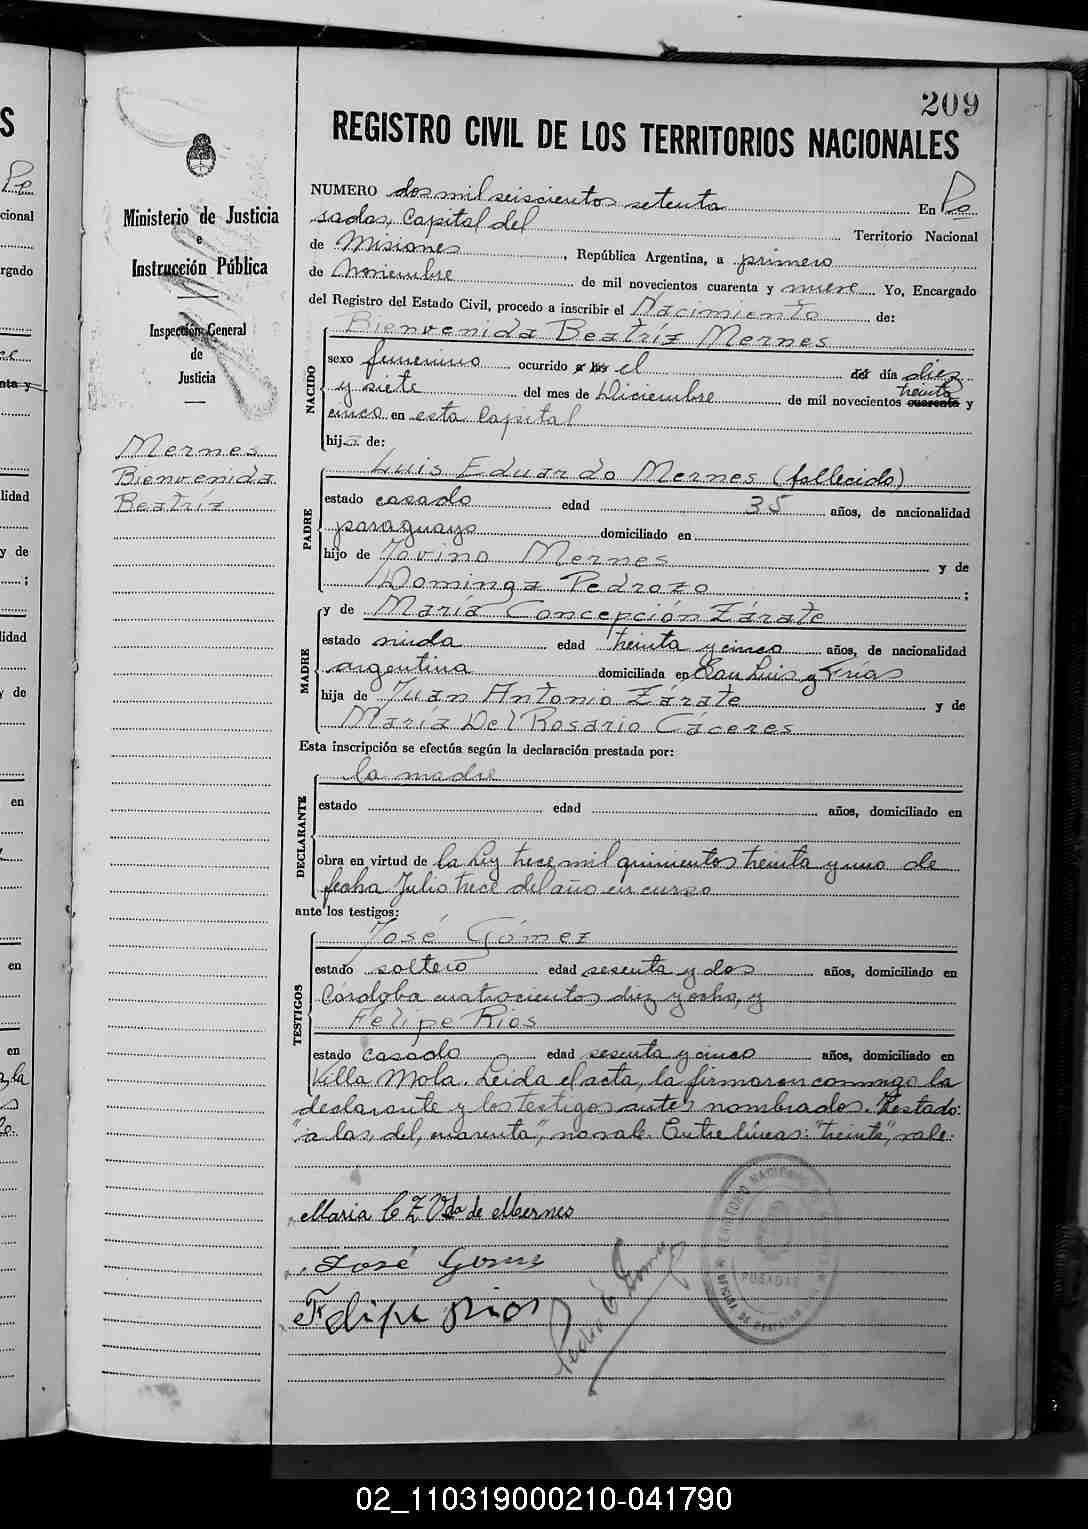 209
REGISTRO CIVIL DE LOS TERRITORIOS NACIONALES
Ministerio de Justicia
e
Instrucción Pública
Inspección General
de
Justicia
Mernes
Bienvenida
Beatríz
NUMERO dos mil seiscientos setenta En Po
sadas, Capital del Territorio Nacional
de Misiones, República Argentina, a primero
de Noviembre de mil novecientos cuarenta y nueve Yo, Encargado
del Registro del Estado Civil, procedo a inscribir el Nacimiento de:
NACIDO
Bienvenida Beatríz Mernes
sexo femenino ocurrido a las el del día diez
y siete del mes de Diciembre de mil novecientos cuarenta treinta y
cinco en esta Capital
hija de:
PADRE
Luis Eduardo Mernes (fallecido)
estado casado edad 35 años, de nacionalidad
paraguayo domiciliado en
hijo de Jovino Mernes y de
Dominga Pedrozo ;
MADRE
y de María Concepción Zárate
estado viuda edad treinta y cinco años, de nacionalidad
argentina domiciliada en San Luis y Frías
hija de Juan Antonio Zárate y de
María Del Rosario Cáceres
Esta inscripción se efectúa según la declaración prestada por:
DECLARANTE
la madre
estado edad años, domiciliado en
obra en virtud de la Ley trece mil quinientos treinta y uno de
fecha Julio trece del año en curso
ante los testigos:
TESTIGOS
José Gómez
estado soltero edad sesenta y dos años, domiciliado en
Córdoba cuatrocientos diez y ocho, y
Felipe Rios
estado casado edad sesenta y cinco años, domiciliado en
Villa Mola. Leida el acta, la firmaron conmigo la
declarante y los testigos antes nombrados. Testado:
"a las, del, cuarenta", no vale. Entre líneas: "treinta", vale.
Maria C Z Vda de Mernes
José Gomez
Felipe Rios
POSADAS
02_110319000210-041790